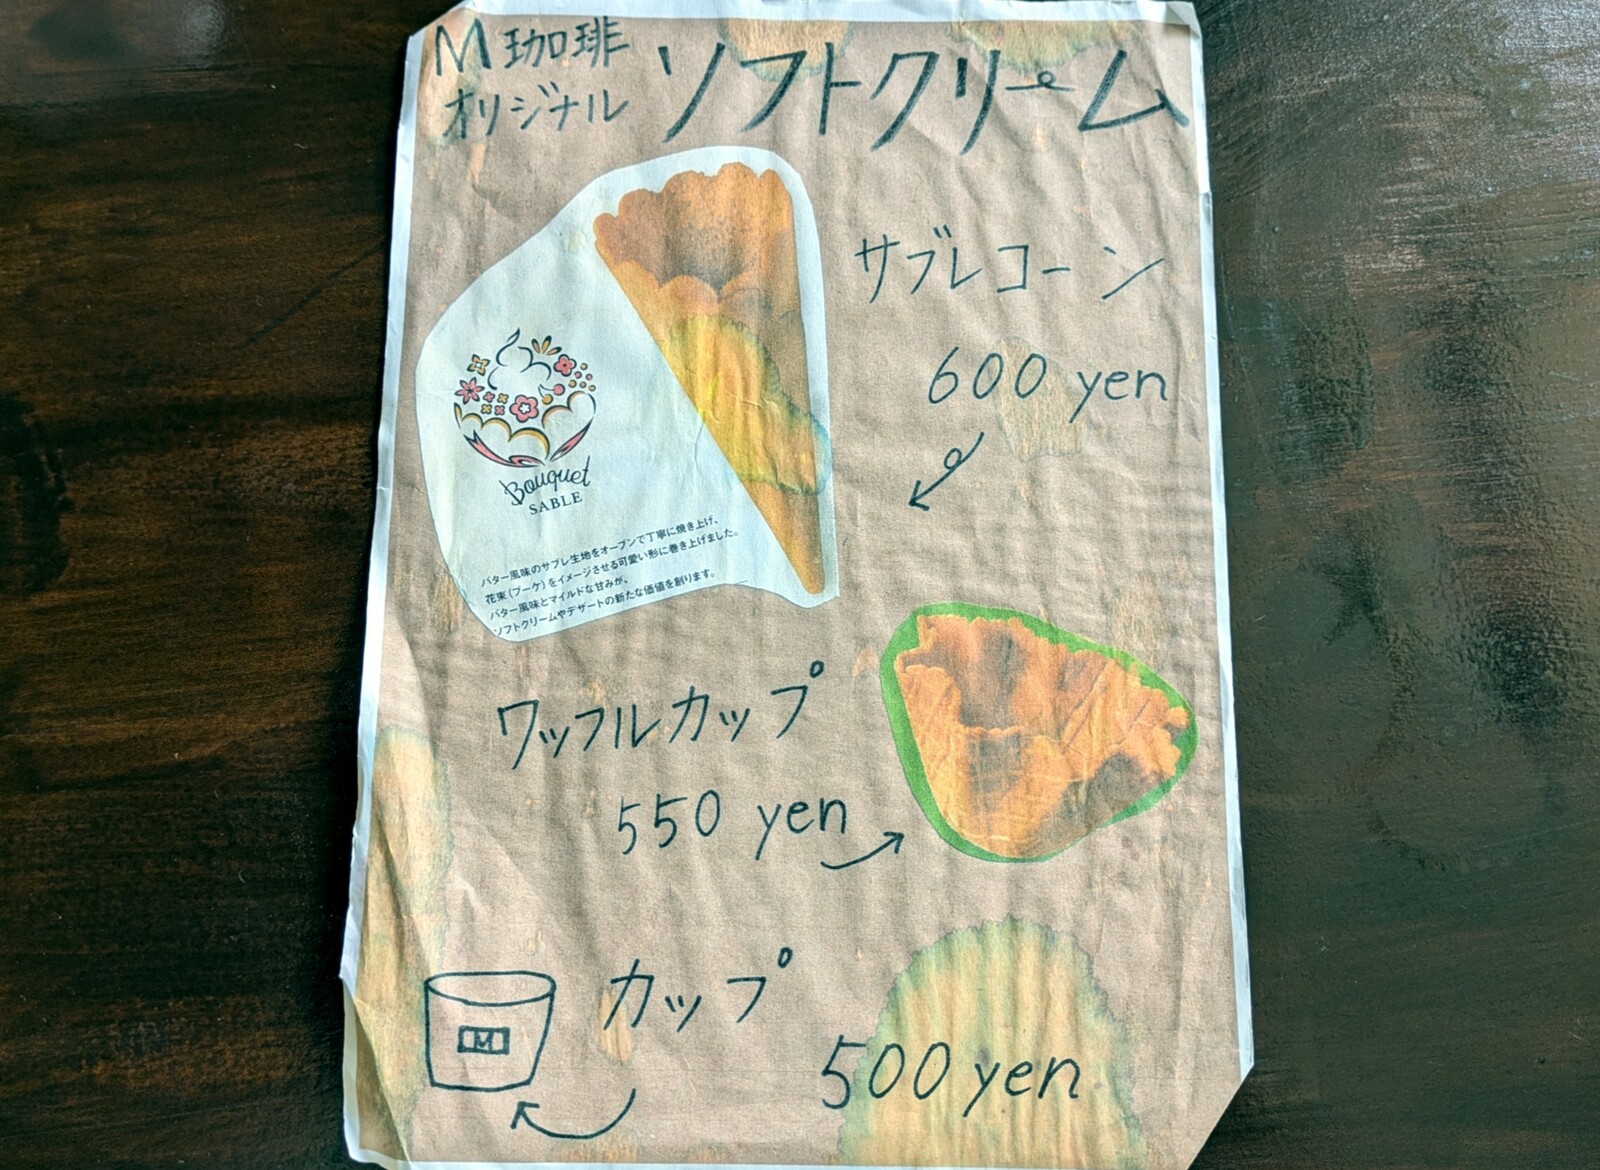 M珈琲
オリジナル
ソフトクリーム
サブレコーン
600 yen
Bouquet
SABLE
バター風味のサブレ生地をオーブンで丁寧に焼き上げ、
花束(ブーケ)をイメージさせる可愛い形に巻き上げました。
バター風味とマイルドな甘みが、
ソフトクリームやデザートの新たな価値を創ります。
ワッフルカップ
550 yen
カップ
M
500 yen